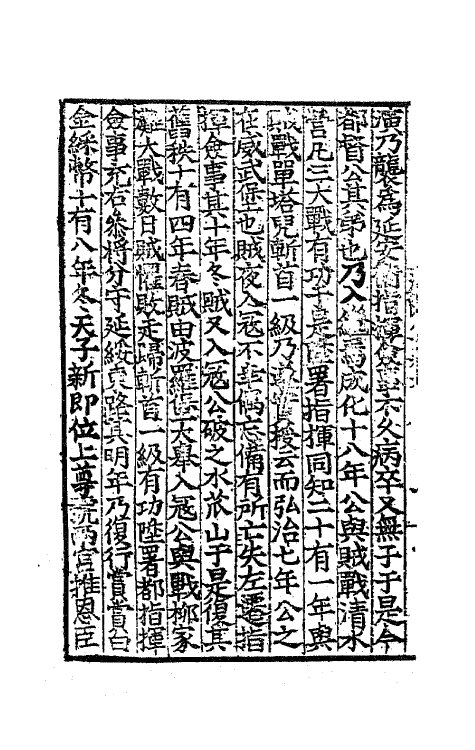 演乃襲為延安衛指揮使演不久病卒又無子于是今
都督公其弟也乃入繼焉成化十八年公與賊戰清水
營凡三大戰有功于是陞署指揮同知二十有一年與
賊戰單塔兒斬首一級乃實授云而弘治七年公之
在威武堡也賊夜入寇不幸偶忘備有所亡失左遷指
揮僉事其十年冬賊又入寇公破之水茨山于是復其
舊秩十有四年春賊由波羅堡大舉入寇公與戰柳家
大戰數日賊懼敗走歸斬首一級有功陞署都指揮
僉事充右叅將分守延綏東路其明年乃復行賞賞白
金綵幣十有八年冬天子新即位上尊號兩宮推恩臣